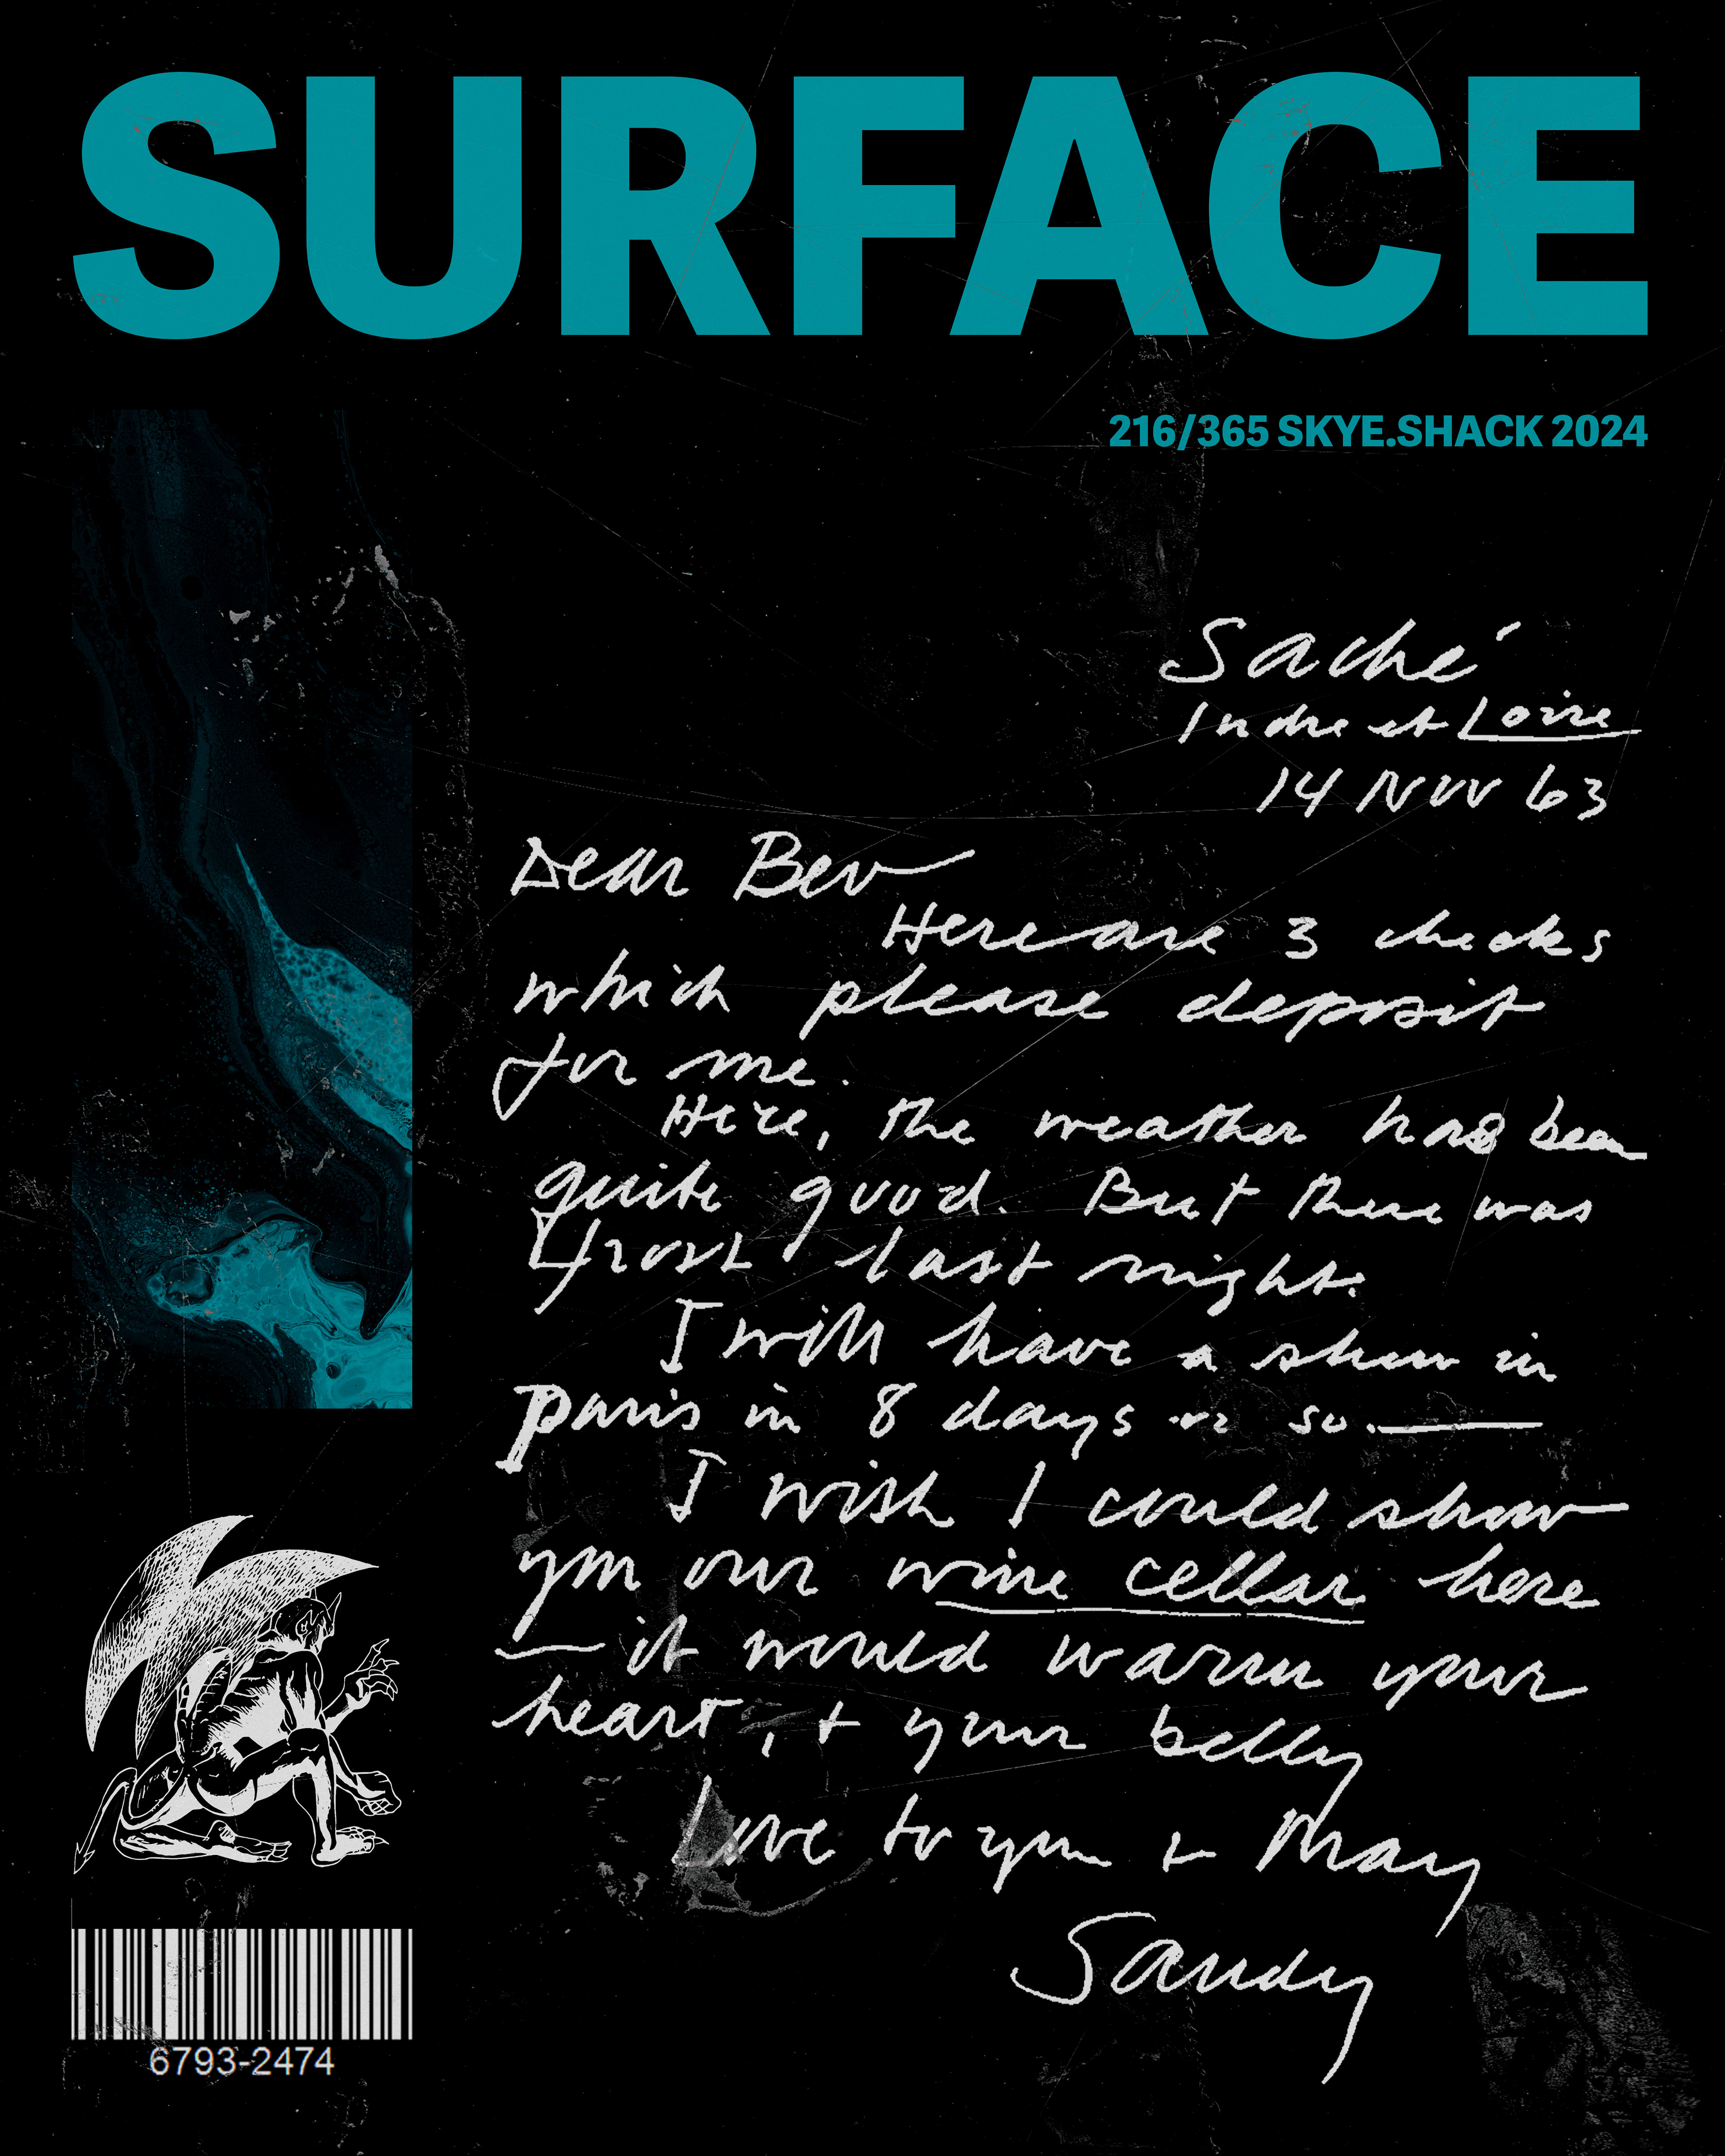 SURFACE
216/365 SKYE.SHACK 2024
Saché
Indre et Loire
14 Nov 63
Dear Bev
Here are 3 checks
which please deposit
for me.
Here, the weather has been
quite good. But there was
frost last night.
I will have a show in
Paris in 8 days or so.—
I wish I could show
you our wine cellar here
— it would warm your
heart, + your belly
Love to you + May
Sandy
6793-2474